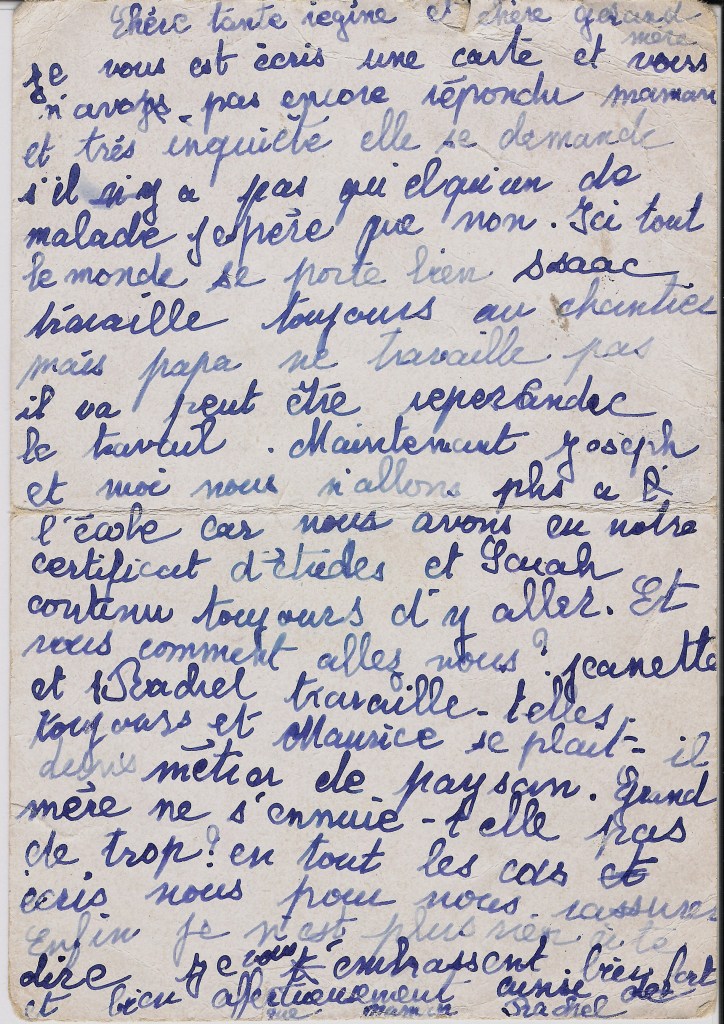 Chère tante regine et chère grand
mère
je vous est écris une carte et vous
n'avez pas encore répondu maman
et très inquiète elle se demande
s'il n'y a pas quielqu'un de
malade j'espère que non. Ici tout
le monde se porte bien Isaac
travaille toujours au chantier
mais papa ne travaille pas
il va peut être
le travail. Maintenant Joseph
et moi nous n'allons plus a
l'école car nous avons eu notre
certificat d'études et Sarah
continu toujours d'y aller. Et
vous comment allez vous? jeanette
et Rachel travaille-telles
toujours et Maurice se plait-il
métier de paysan. Grand
mère ne s'ennuie-t'elle pas
de trop? en tout les cas
écris nous pour nous rassurer
Enfin je n'est plus rien à te
dire je vous embrassent bien fort
et bien affectueusement ainsi
que maman Rachel